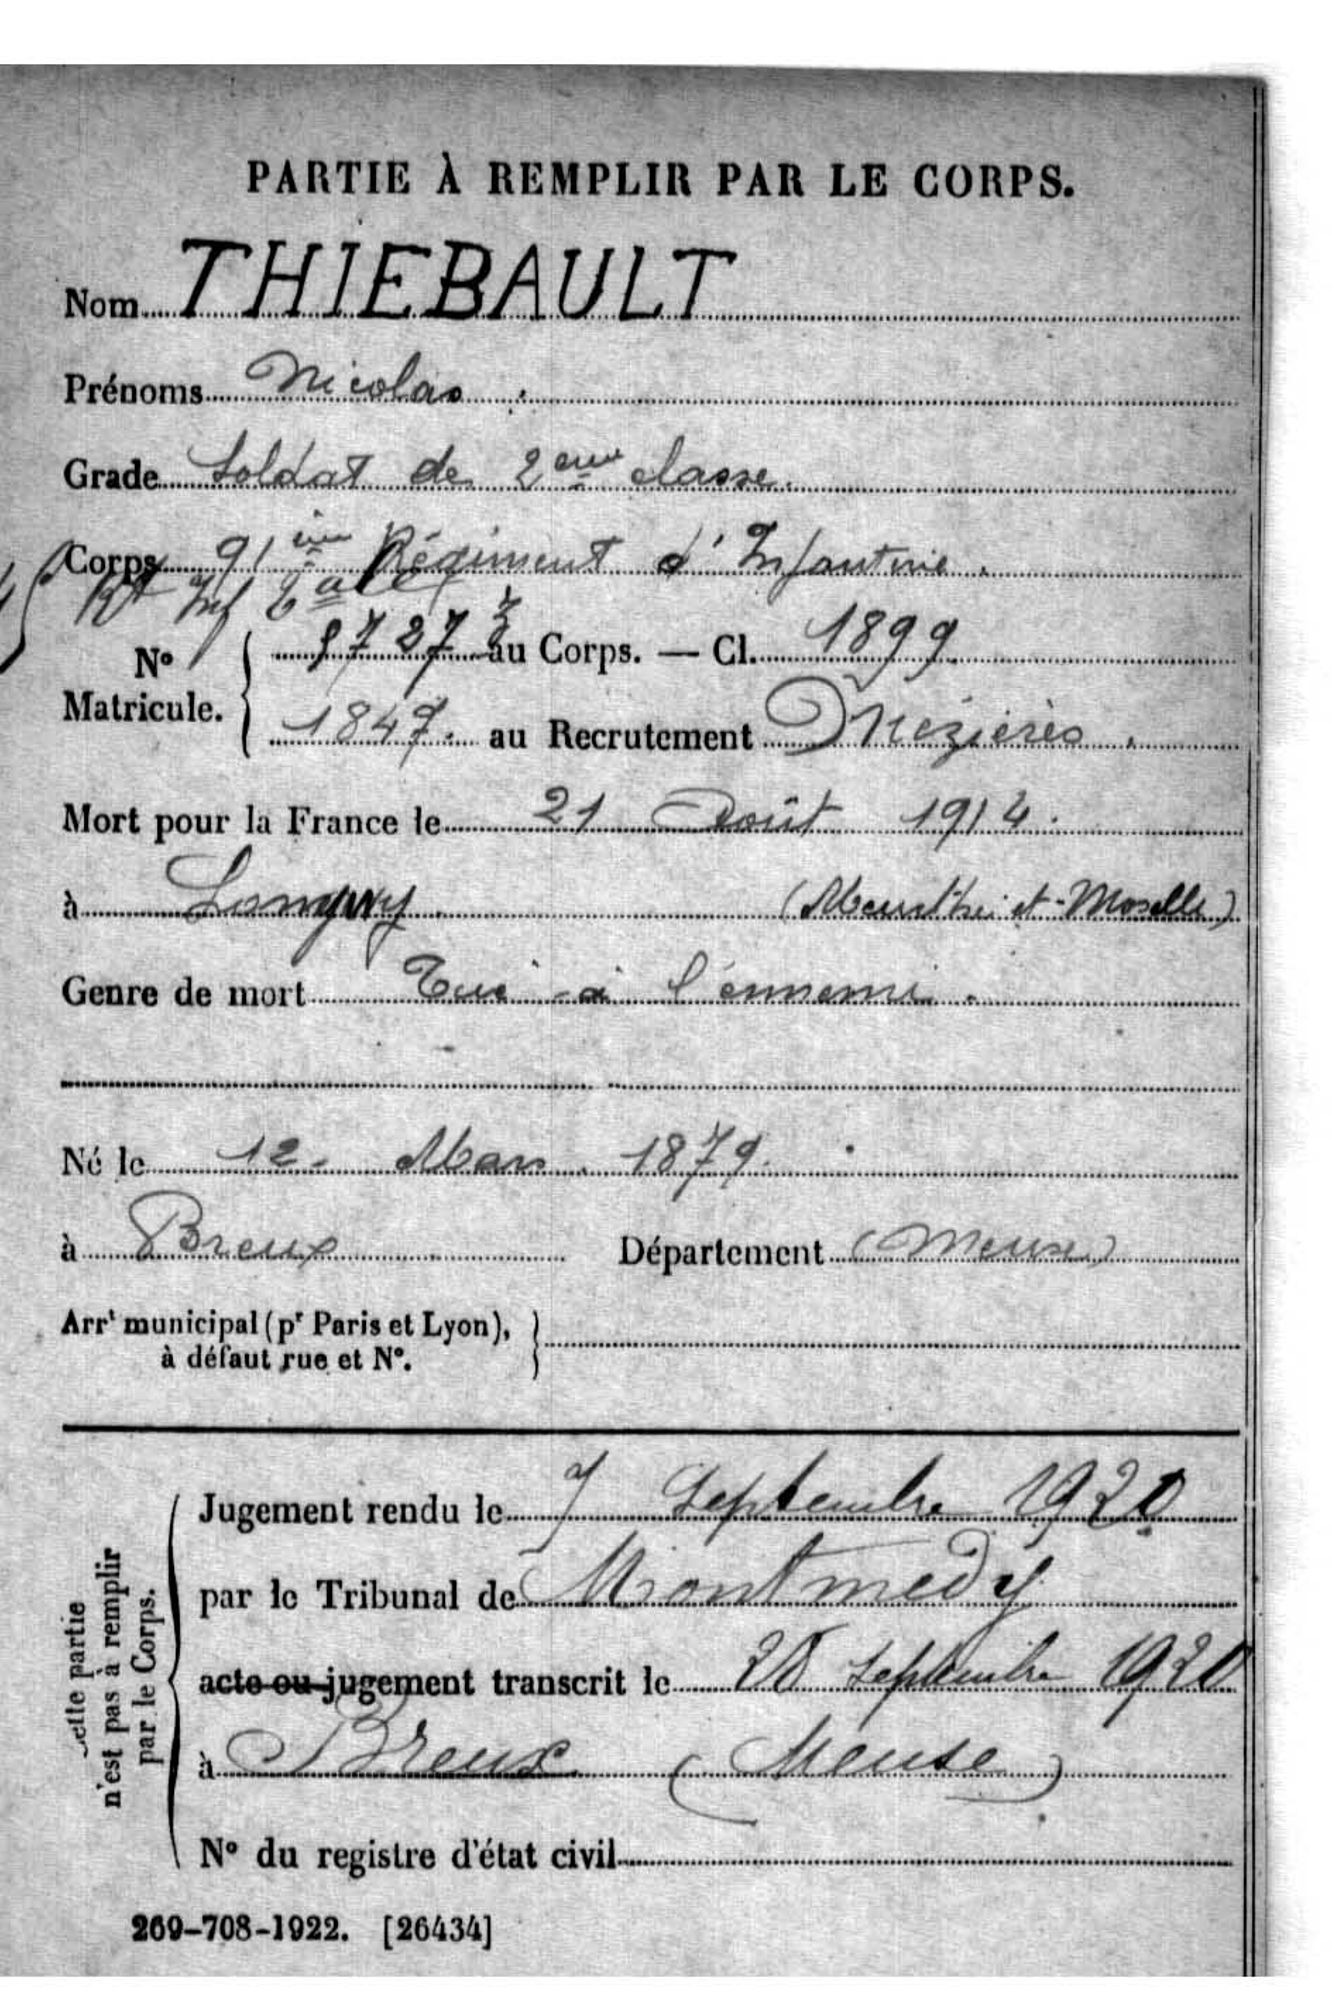 PARTIE À REMPLIR PAR LE CORPS.
Nom THIEBAULT
Prénoms Nicolas.
Grade Soldat de 2eme classe.
Corps 91ème Régiment d'Infanterie.
Rt Inf
N° Matricule. { 8727 au Corps. — Cl. 1899
1847. au Recrutement Mézières.
Mort pour la France le 21 Août 1914.
à Longwy. (Meurthe-et-Moselle)
Genre de mort Tué à l'ennemi.
Né le 12 Mars 1879.
à Breux Département (Meuse)
Arrt municipal (pr Paris et Lyon),
à défaut rue et N°. }
Cette partie
n'est pas à remplir
par le Corps.
Jugement rendu le 7 Septembre 1920
par le Tribunal de Montmedy
acte ou jugement transcrit le 28 Septembre 1920
à Breux (Meuse)
N° du registre d'état civil
269-708-1922. [26434]